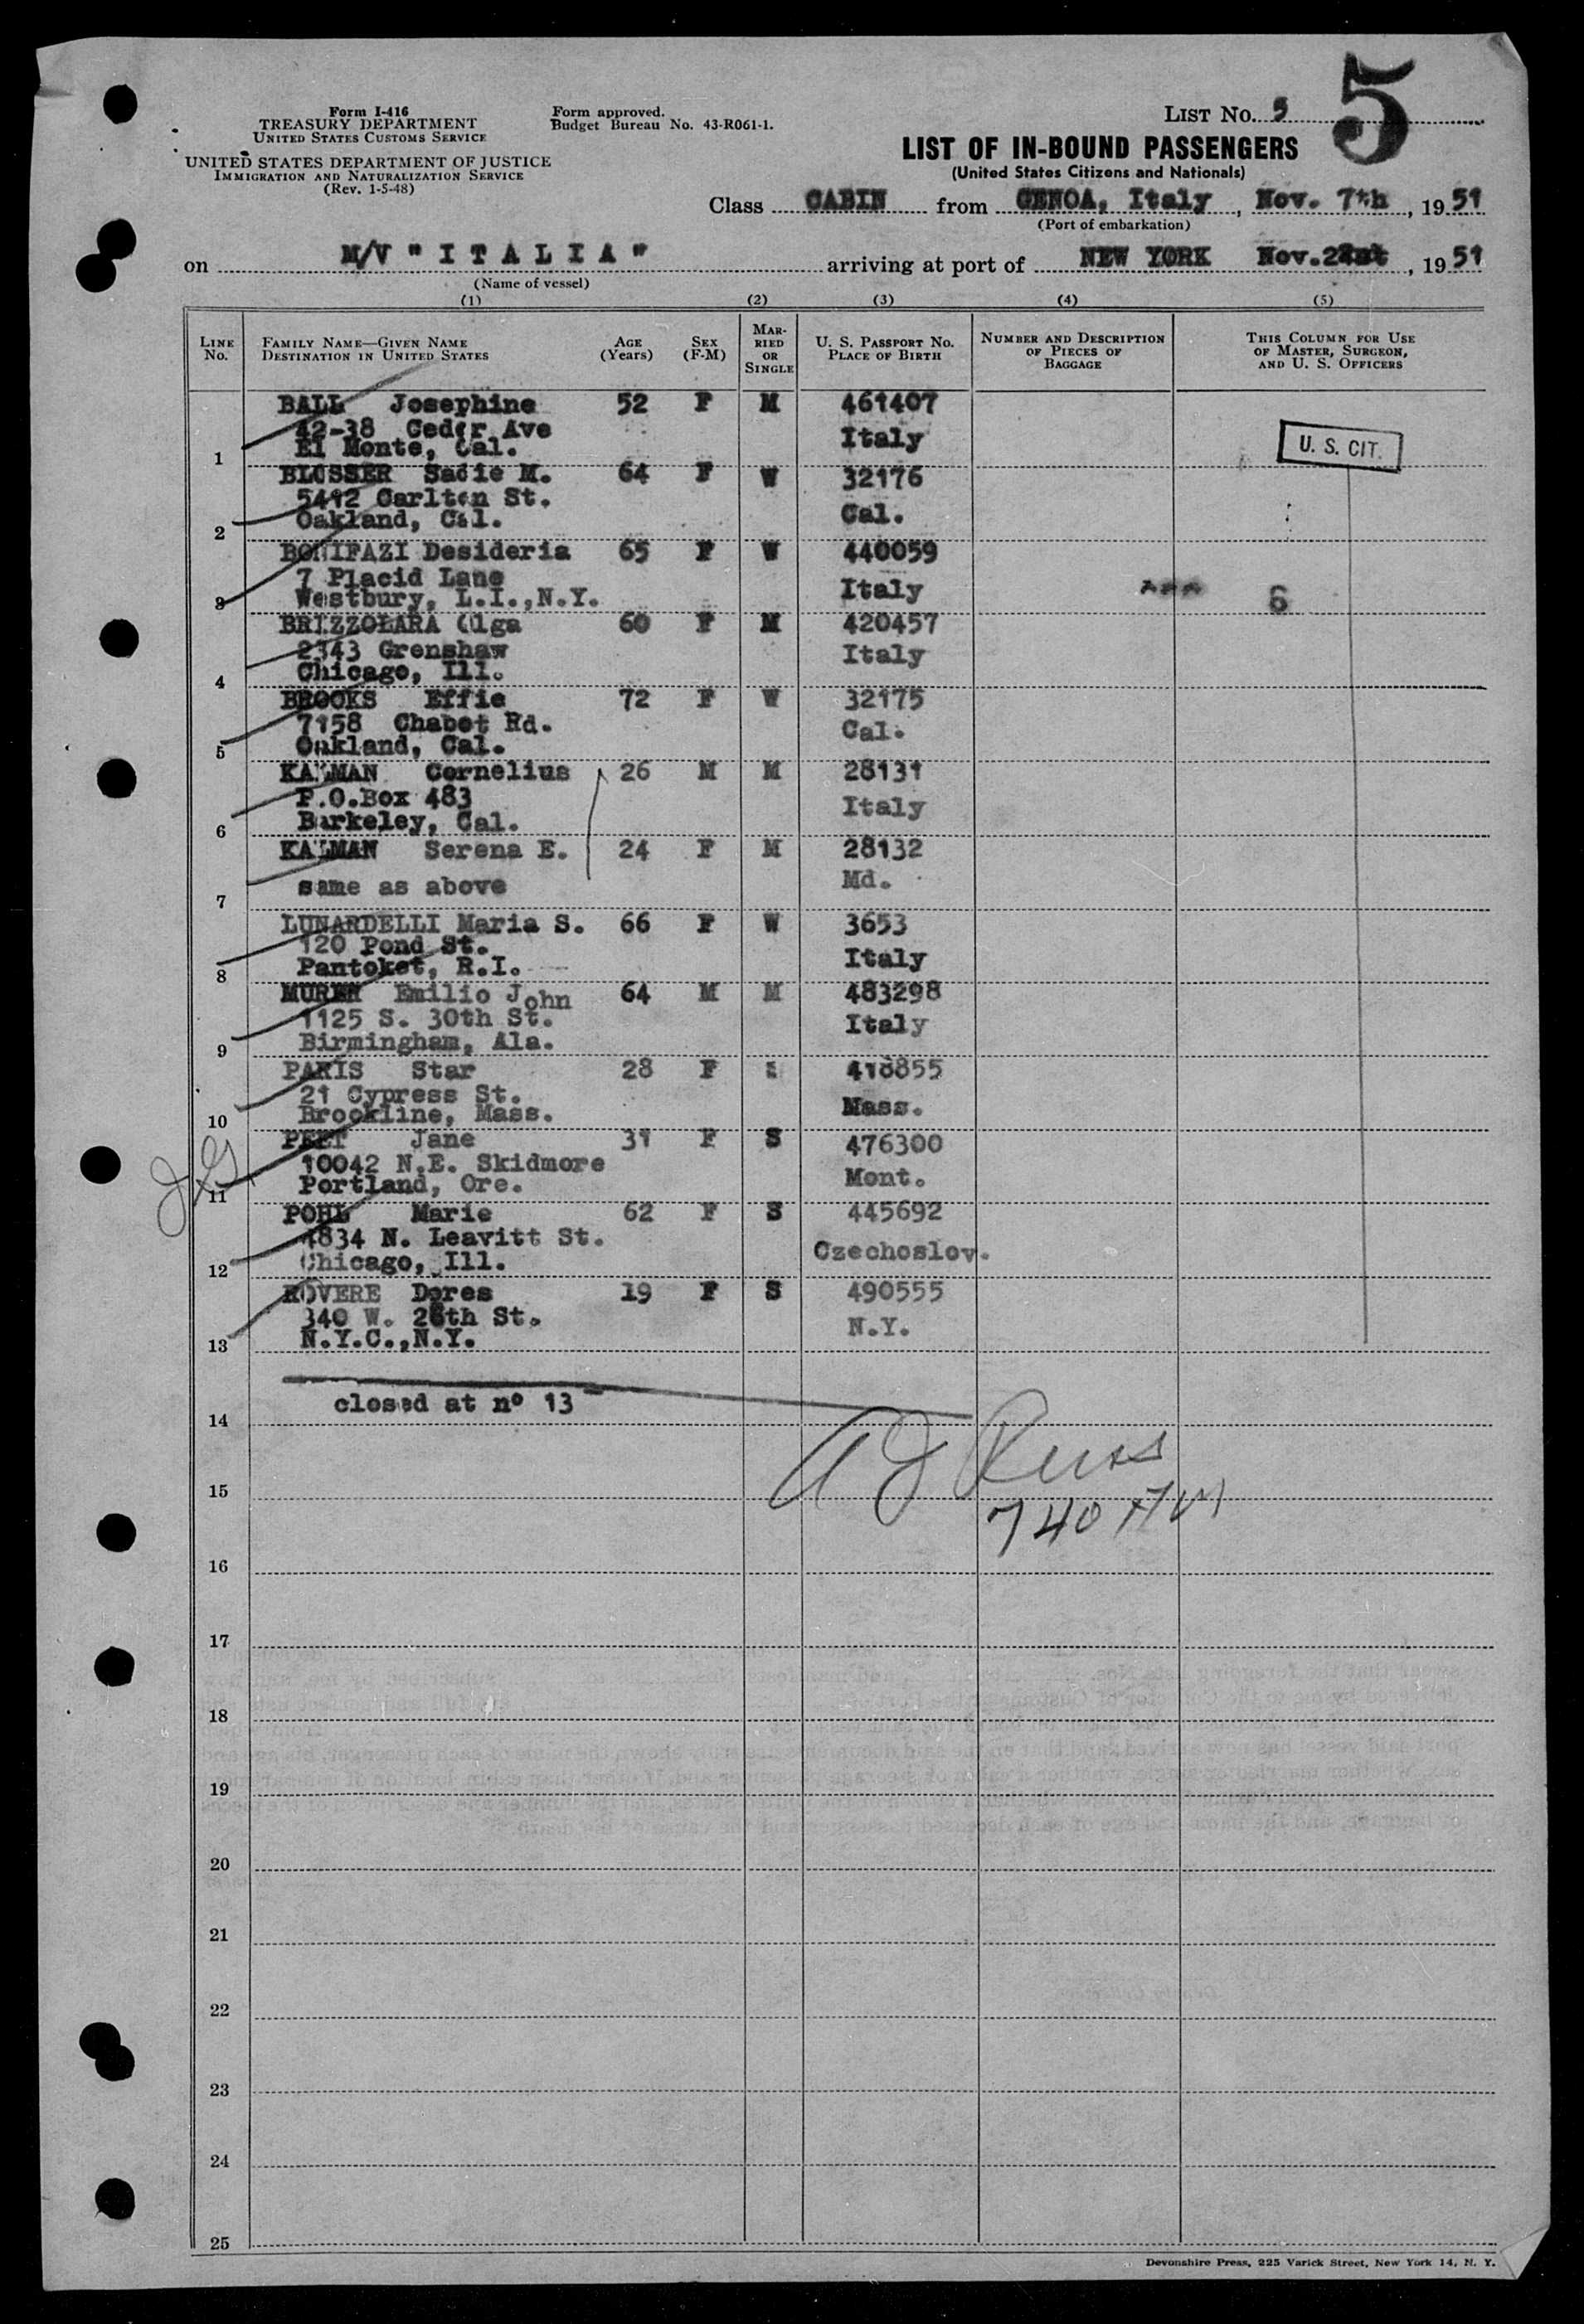 Form I-416
TREASURY DEPARTMENT
UNITED STATES CUSTOMS SERVICE
UNITED STATES DEPARTMENT OF JUSTICE
IMMIGRATION AND NATURALIZATION SERVICE
(Rev. 1-5-48)
Form approved.
Budget Bureau No. 43-R061-1.
LIST No. 5
5
LIST OF IN-BOUND PASSENGERS
(United States Citizens and Nationals)
Class CABIN from GENOA, Italy, Nov. 7th, 1951
(Port of embarkation)
on M/V "ITALIA" arriving at port of NEW YORK Nov. , 1951
(Name of vessel)
(1) (2) (3) (4) (5)
LINE No. FAMILY NAME—GIVEN NAME DESTINATION IN UNITED STATES AGE (Years) SEX (F-M) MARRIED OR SINGLE U. S. PASSPORT No. PLACE OF BIRTH NUMBER AND DESCRIPTION OF PIECES OF BAGGAGE THIS COLUMN FOR USE OF MASTER, SURGEON, AND U. S. OFFICERS
BALL Josephine 52 F M 461407
42-38 Ceder Ave Italy
1 El Monte, Cal.
U. S. CIT.
BLOSSER Sadie M. 64 F W 32176
5412 Carlton St. Cal.
2 Oakland, Cal.
BONIFAZI Desideria 65 F W 440059
7 Placid Lane Italy
3 Westbury, L.I.,N.Y.
6
BRIZZOLARA Olga 60 F M 420457
2343 Grenshaw Italy
4 Chicago, Ill.
BROOKS Effie 72 F W 32175
7158 Chabot Rd. Cal.
5 Oakland, Cal.
KALMAN Cornelius 26 M M 28131
P.O.Box 483 Italy
6 Barkeley, Cal.
KALMAN Serena E. 24 F M 28132
same as above Md.
7
LUNARDELLI Maria S. 66 F W 3653
120 Pond St. Italy
8 Pantoket, R.I.
MUREN Emilio John 64 M M 483298
1125 S. 30th St. Italy
9 Birmingham, Ala.
PARIS Star 28 F S 418855
21 Cypress St. Mass.
10 Brookline, Mass.
PEET Jane 31 F S 476300
10042 N.E. Skidmore Mont.
11 Portland, Ore.
POHL Marie 62 F S 445692
4834 N. Leavitt St. Czechoslov.
12 Chicago, Ill.
ROVERE Dores 19 F S 490555
340 W. 28th St. N.Y.
13 N.Y.C.,N.Y.
closed at nº 13
14
A J Russ
15
740 AM
16
17
18
19
20
21
22
23
24
25
Devonshire Press, 225 Varick Street, New York 14, N. Y.